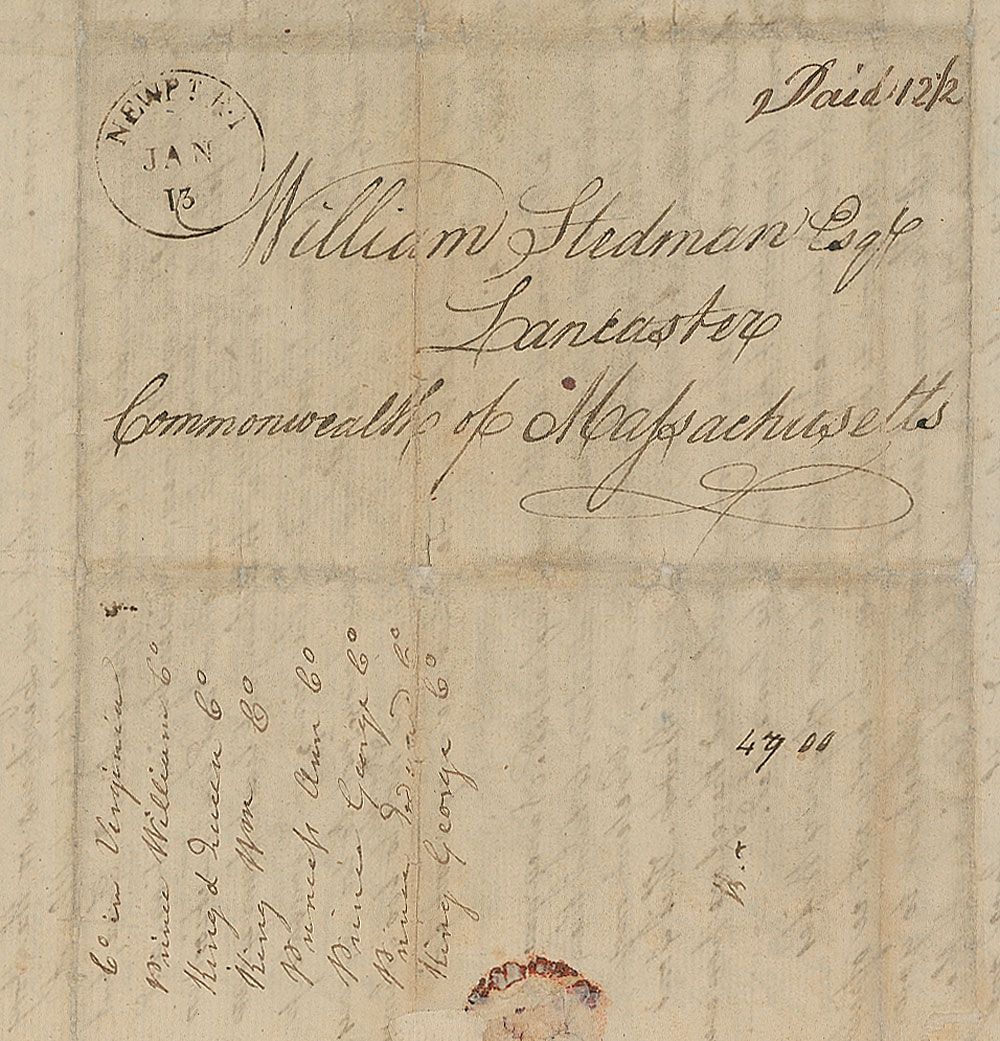 NEWPT R.I
JAN
13
Paid 12½
William Stedman Esqr
Lancaster
Commonwealth of Massachusetts
Co in Virginia
Prince William Co
King & Queen Co
King Wm Co
Princess Ann Co
Prince George Co
Prince Edward Co
King George Co
49 00